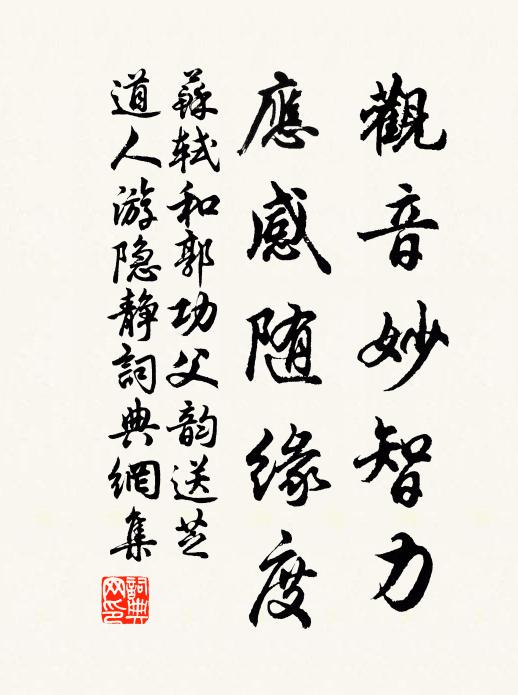 觀音妙智力
應感随緣度
蘇軾和郭功父韵送芝
道人游隐静詞典網集
詞典
网印